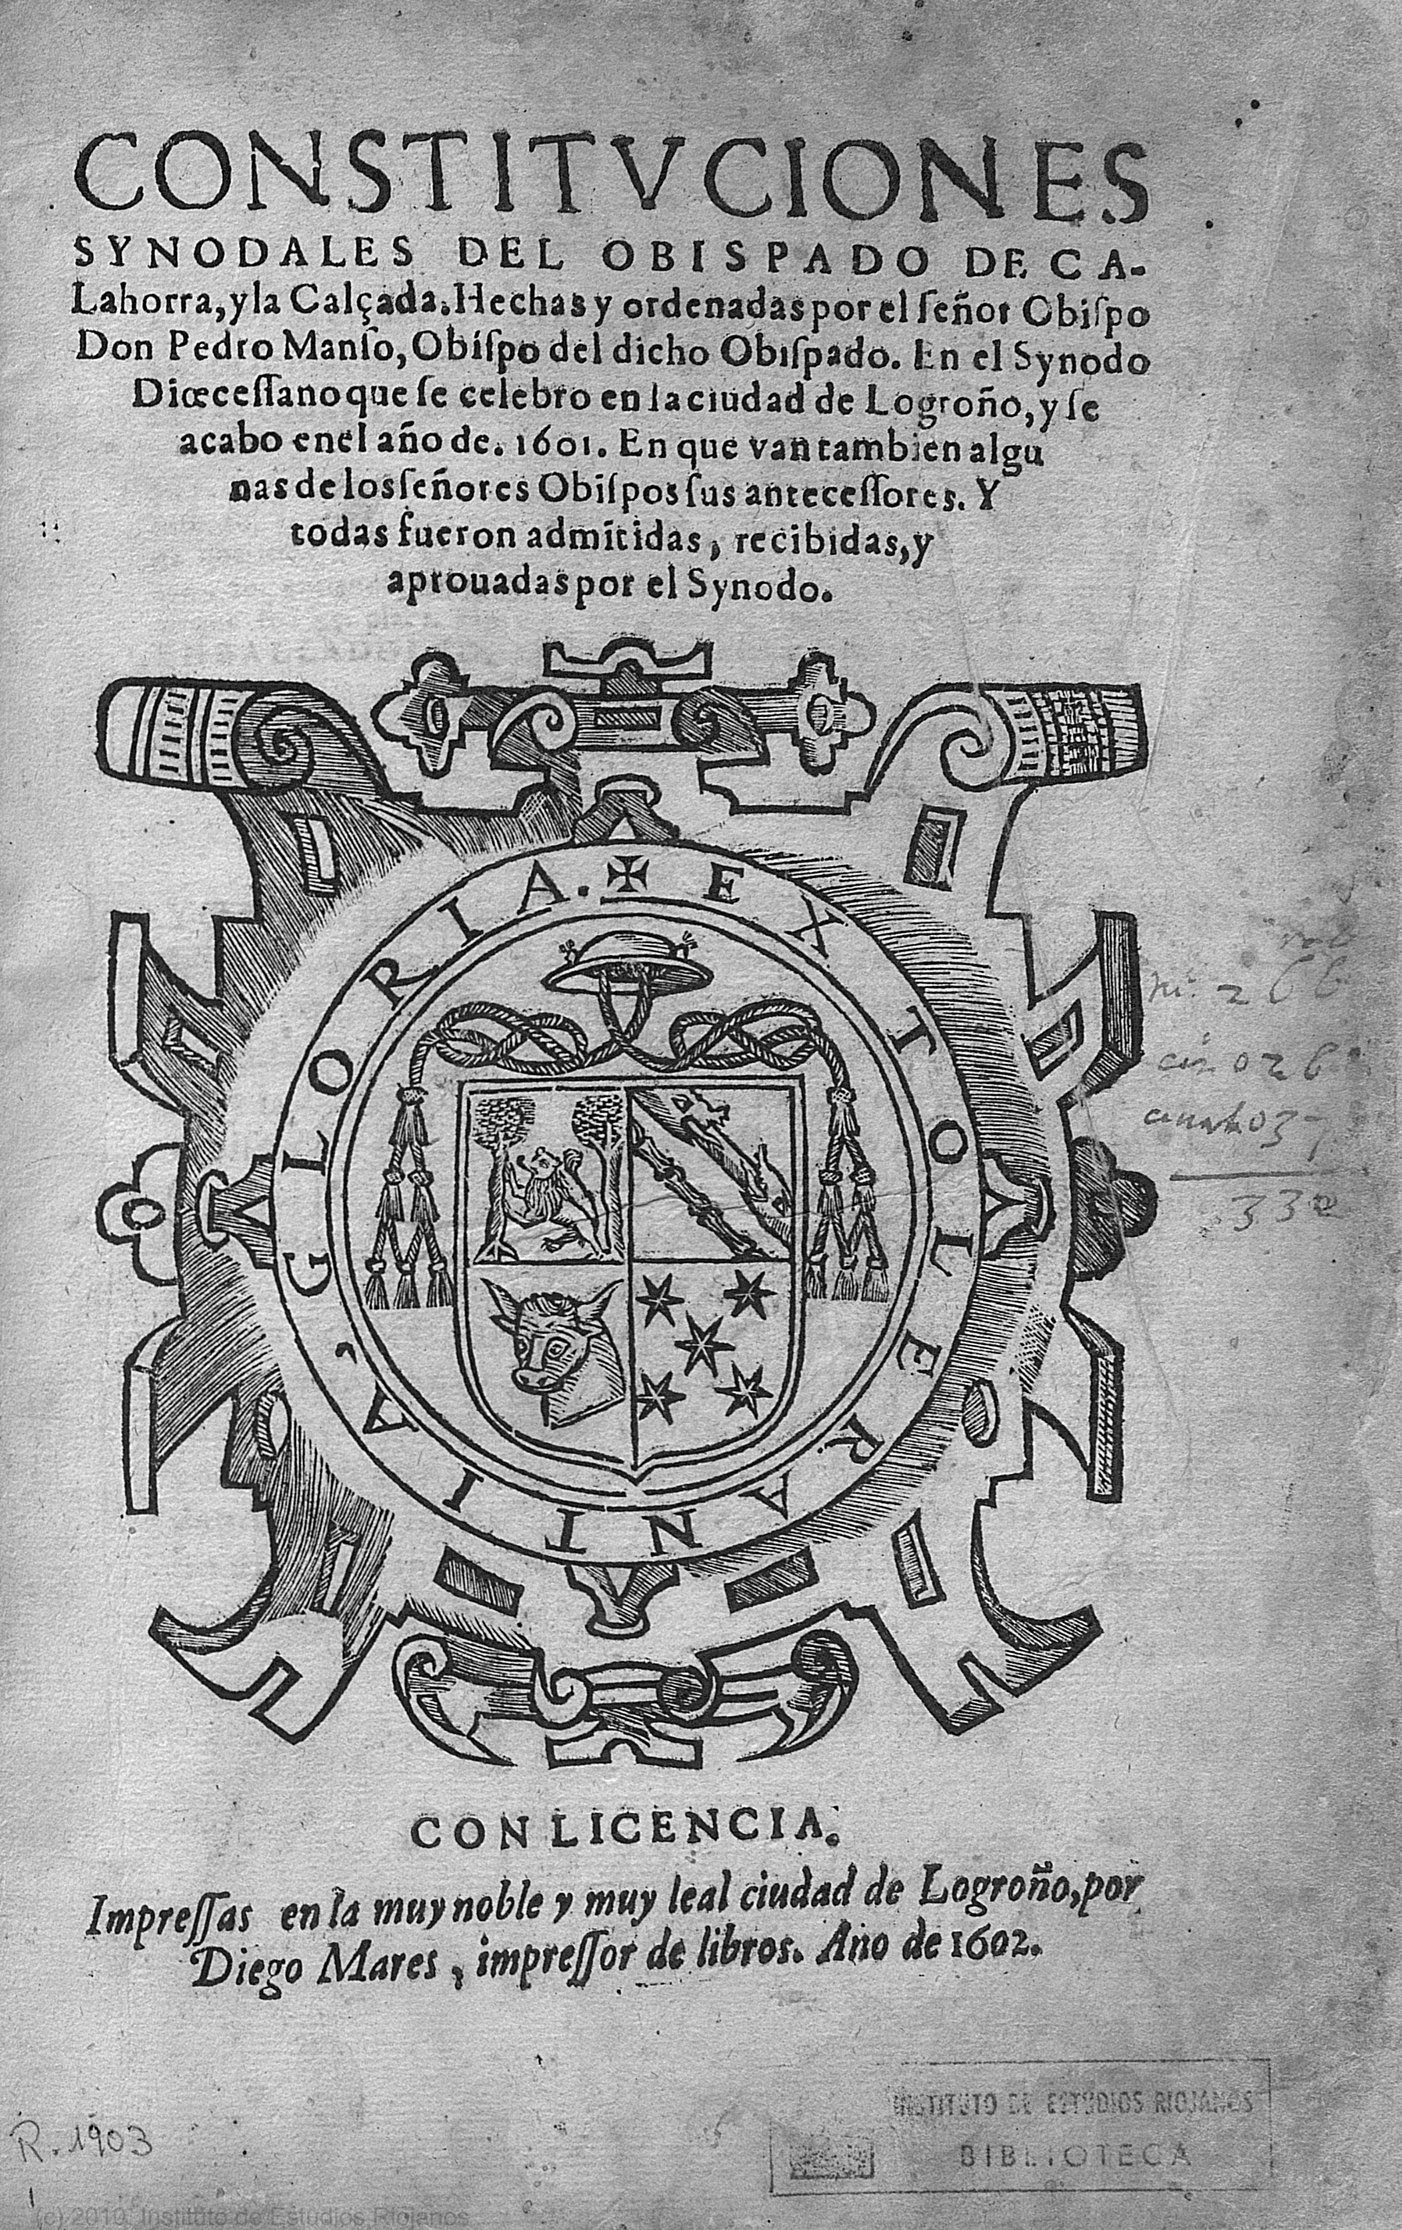 CONSTITVCIONES
SYNODALES DEL OBISPADO DE CA-
Lahorra, y la Calçada. Hechas y ordenadas por el ſeñor Obiſpo
Don Pedro Manſo, Obiſpo del dicho Obiſpado. En el Synodo
Diœceſſano que ſe celebro en la ciudad de Logroño, y ſe
acabo en el año de. 1601. En que van tambien algu
nas de los ſeñores Obiſpos ſus anteceſſores. Y
todas fueron admitidas, recibidas, y
aprouadas por el Synodo.
✠ EX TOLERANTIA, GLORIA.
266
026
03
332
CON LICENCIA.
Impreſſas en la muy noble y muy leal ciudad de Logroño, por
Diego Mares, impreſſor de libros. Año de 1602.
R. 1903
INSTITUTO DE ESTUDIOS RIOJANOS
BIBLIOTECA
(c) 2010. Instituto de Estudios Riojanos